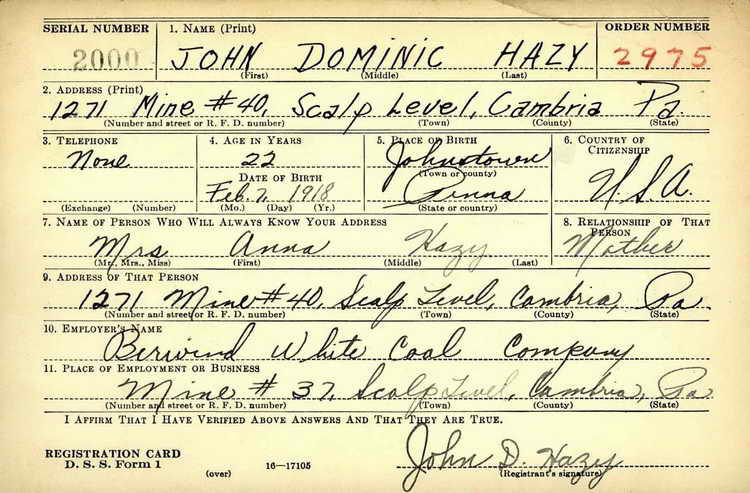 SERIAL NUMBER 1. NAME (Print) ORDER NUMBER
2000 JOHN DOMINIC HAZY 2975
(First) (Middle) (Last)
2. ADDRESS (Print)
1271 Mine #40, Scalp Level, Cambria Pa.
(Number and street or R. F. D. number) (Town) (County) (State)
3. TELEPHONE 4. AGE IN YEARS 5. PLACE OF BIRTH 6. COUNTRY OF
CITIZENSHIP
None 22 Johnstown
DATE OF BIRTH (Town or county)
Feb. 7, 1918 Penna U.S.A.
(Exchange) (Number) (Mo.) (Day) (Yr.) (State or country)
7. NAME OF PERSON WHO WILL ALWAYS KNOW YOUR ADDRESS 8. RELATIONSHIP OF THAT
PERSON
Mrs Anna Hazy Mother
(Mr., Mrs., Miss) (First) (Middle) (Last)
9. ADDRESS OF THAT PERSON
1271 Mine #40, Scalp Level, Cambria, Pa.
(Number and street or R. F. D. number) (Town) (County) (State)
10. EMPLOYER'S NAME
Berwind White Coal Company
11. PLACE OF EMPLOYMENT OR BUSINESS
Mine # 37, Scalp Level, Cambria, Pa
(Number and street or R. F. D. number) (Town) (County) (State)
I AFFIRM THAT I HAVE VERIFIED ABOVE ANSWERS AND THAT THEY ARE TRUE.
REGISTRATION CARD John D. Hazy
D. S. S. Form 1 (over) 16—17105 (Registrant's signature)